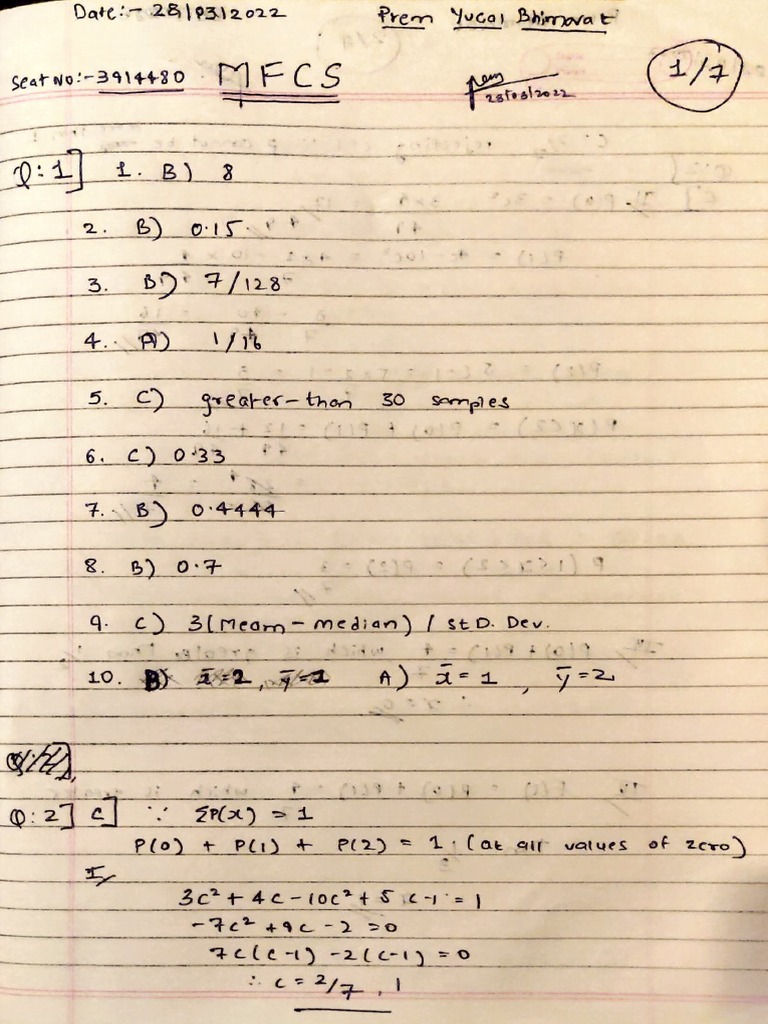 Date:- 28/03/2022 Prem Yucal Bhimavat
Seat No:- 3914480 MFCS 28/03/2022 1/7
Q:1] 1. B) 8
2. B) 0.15
3. B) 7/128
4. A) 1/16
5. C) greater-than 30 samples
6. C) 0.33
7. B) 0.4444
8. B) 0.7
9. C) 3(Mean-median) / StD. Dev.
10. A) x̄ = 1 , ȳ = 2
Q:2] C] ∵ ΣP(x) = 1
P(0) + P(1) + P(2) = 1 (at all values of zero)
I/
3c² + 4c - 10c² + 5c - 1 = 1
-7c² + 9c - 2 = 0
7c(c-1) - 2(c-1) = 0
∴ c = 2/7 , 1